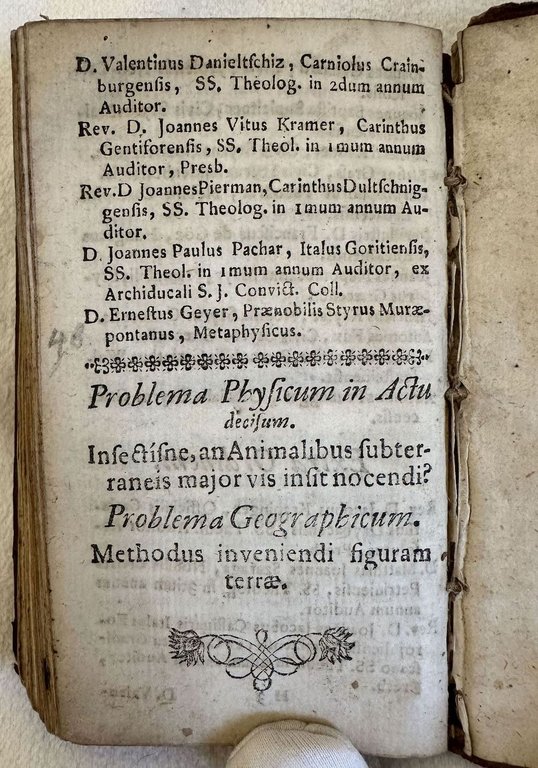 D. Valentinus Danieltſchiz, Carniolus Crain-
burgenſis, SS. Theolog. in 2dum annum
Auditor.
Rev. D. Joannes Vitus Kramer, Carinthus
Gentiforenſis, SS. Theol. in 1mum annum
Auditor, Presb.
Rev.D Joannes Pierman, Carinthus Dultſchnig-
genſis, SS. Theolog. in 1mum annum Au-
ditor.
D. Joannes Paulus Pachar, Italus Goritienſis,
SS. Theol. in 1mum annum Auditor, ex
Archiducali S. J. Convict. Coll.
D. Erneſtus Geyer, Prænobilis Styrus Muræ-
pontanus, Metaphyſicus.
Problema Phyſicum in Actu
deciſum.
Inſectíſne, an Animalibus ſubter-
raneis major vis inſit nocendi?
Problema Geographicum.
Methodus inveniendi figuram
terræ.